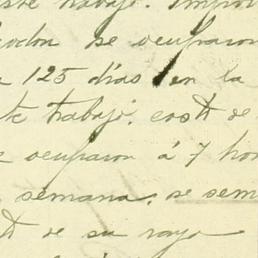 este trabajo. Impor
se ocuparon
125 días en la
te trabajo, costó de
ocuparon á 7 hom
semana, se sem
de su raya